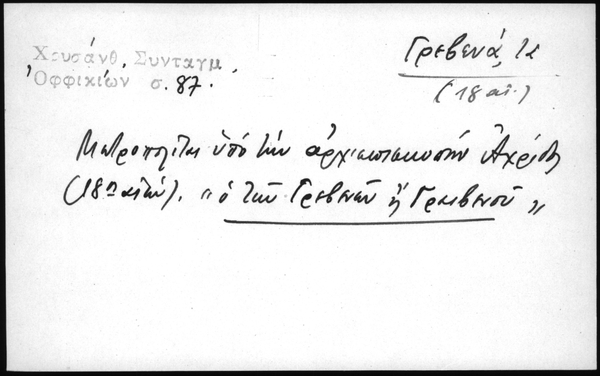 Χρυσάνθ. Συνταγμ.
Ὀφφικίων σ. 87.
Γρεβενά, τα
(18 αἰ.)
Μητροπολίτης ὑπό τήν ἀρχιεπισκοπήν Ἀχρίδος
(18ος αἰών). "ὁ τῶν Γρεβενῶν ἤ Γρεβενοῦ"